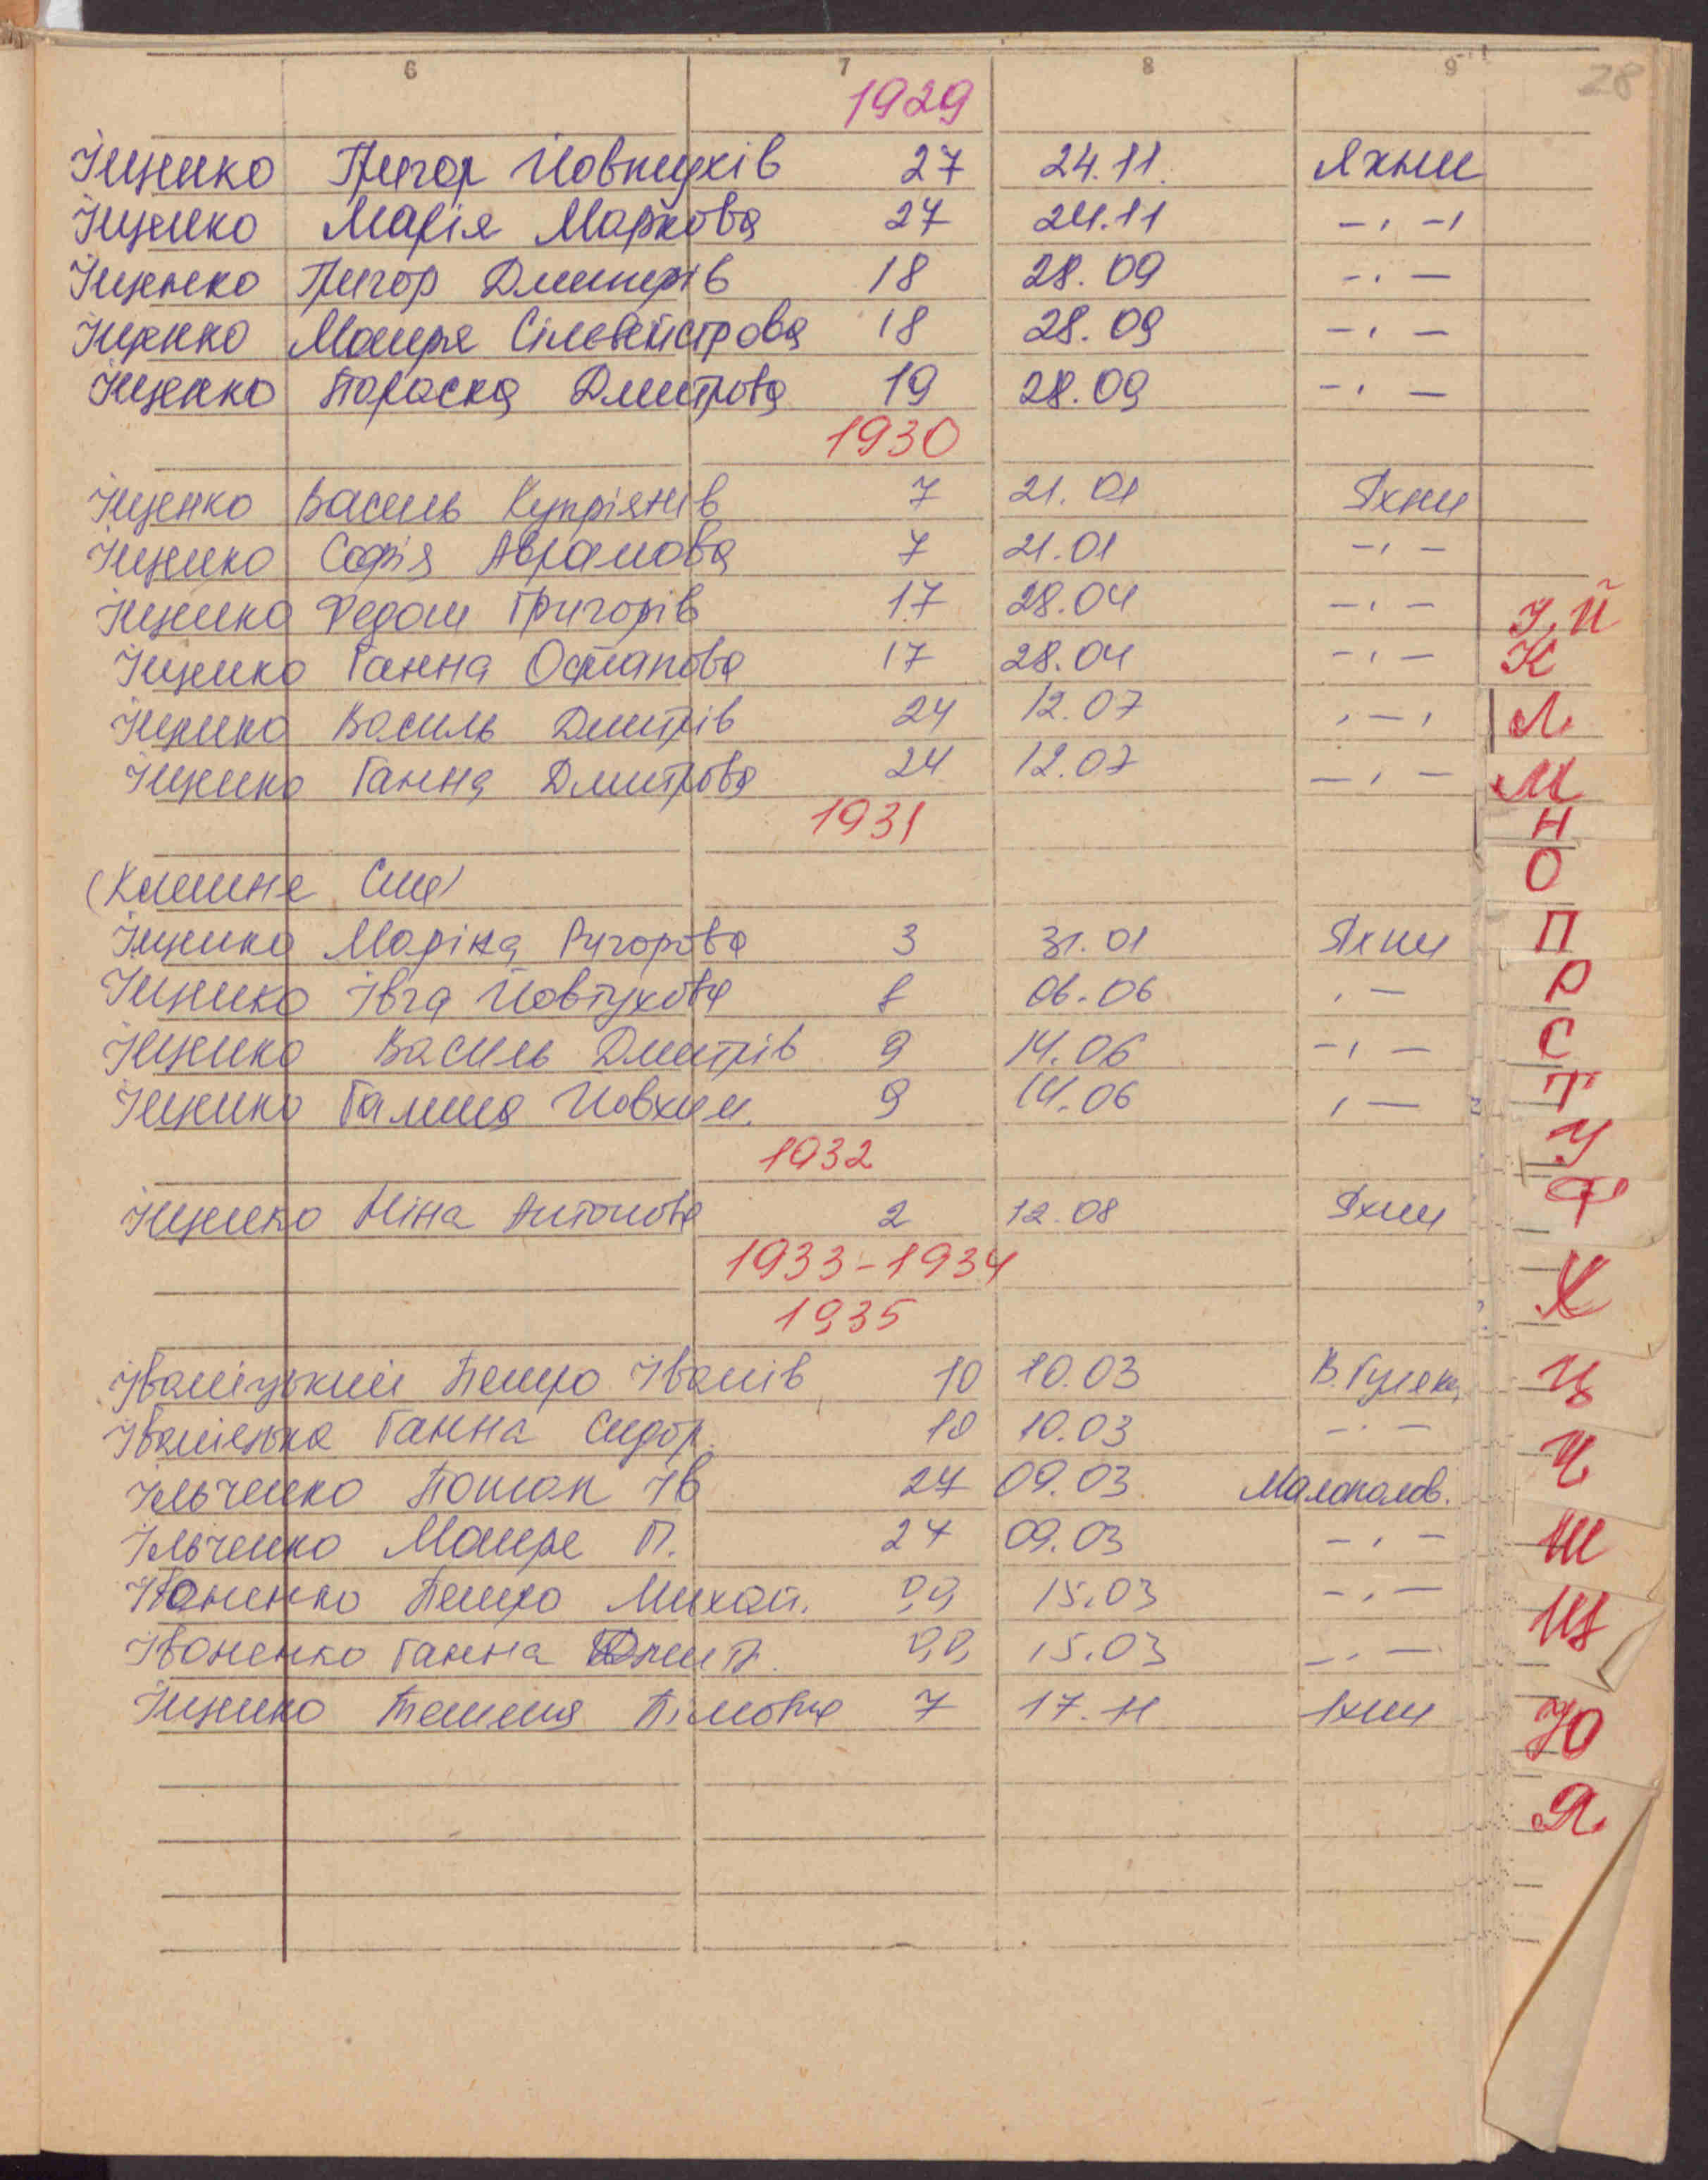 6 7 8 9 28
1929
Іщенко Григор Йовтухів 27 24.11. Яхни
Іщенко Марія Маркова 27 24.11 -,-,
Іщенко Григор Дмитрів 18 28.09 -.-
Іщенко Мотря Сільвейстрова 18 28.09 -,-
Іщенко Параска Дмитрова 19 28.09 -,-
1930
Іщенко Василь Купріянів 7 21.01 Яхни
Іщенко Софія Аврамова 7 21.01 -,-
Іщенко Федот Григорів 17 28.04 -,-
І, Й
Іщенко Ганна Остапова 17 28.04 -,-
К
Іщенко Василь Дмитрів 24 12.07 ,-,
Л
Іщенко Ганна Дмитрова 24 12.07 -,-
М
1931
Н
О
Іщенко Маріна Ригорова 3 31.01 Яхни
П
Іщенко Івга Йовтухова 8 06.06 ,-
Р
Іщенко Василь Дмитрів 9 14.06 -,-
С
Іщенко Галина Йовхим. 9 14.06 ,-
Т
1932
У
Іщенко Ніна Антонова 2 12.08 Яхни
Ф
1933-1934
Х
1935
Іваніцький Петро Іванів 10 10.03
Ц
Іваніцька Ганна Сидор. 10 10.03 -.-
Ч
Ільченко Потап Ів 27 09.03 Малополов.
Ільченко Мотря П. 27 09.03 -,-
Ш
Іваненко Петро Михай. 15.03 -,-
Щ
Іваненко Ганна Дмит. 15.03 -.-
Іщенко 7 17.11 Яхни
Ю
Я